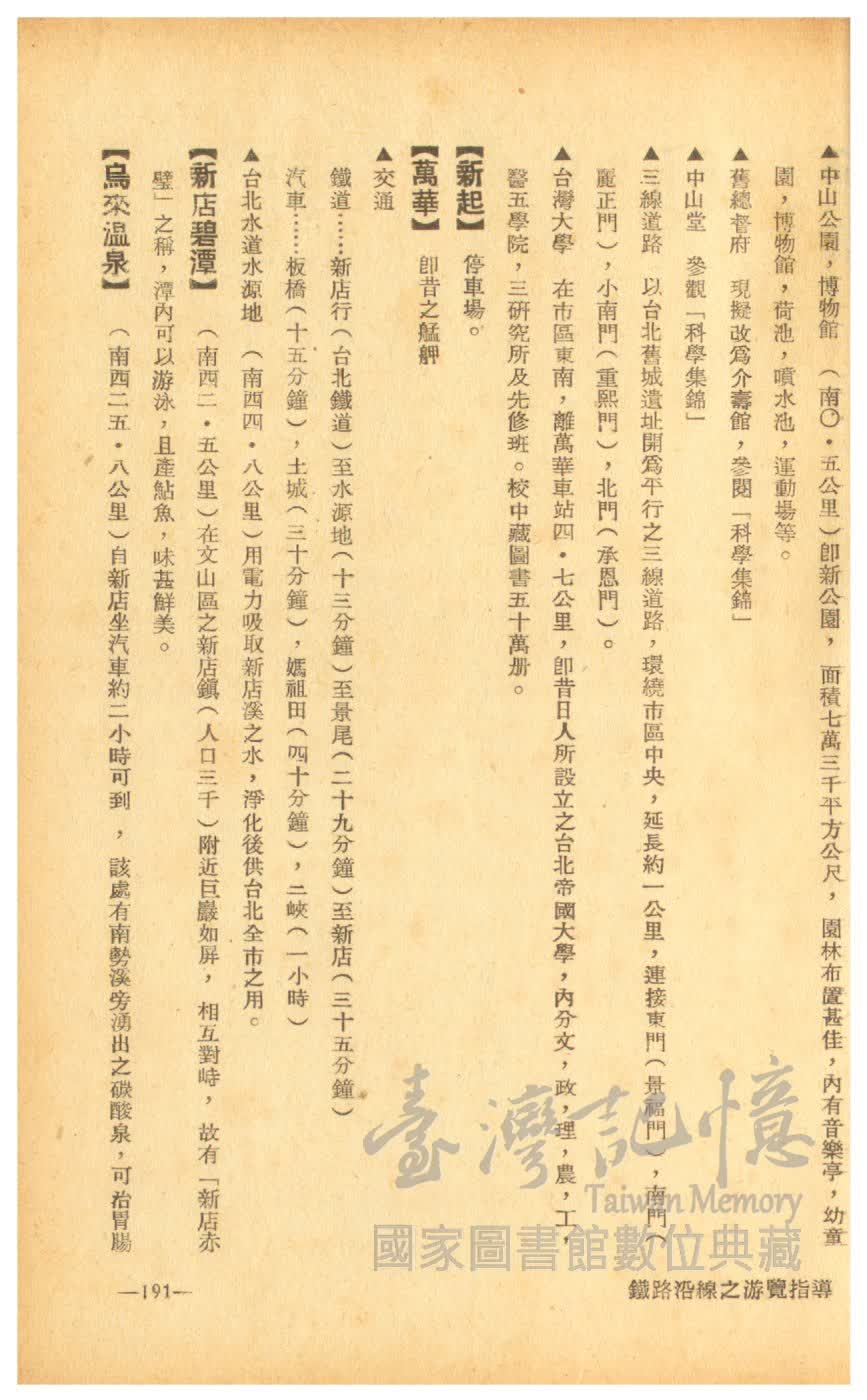 ▲中山公園，博物館　（南〇・五公里）卽新公園，面積七萬三千平方公尺，園林布置甚佳，內有音樂亭，幼童
園，博物館，荷池，噴水池，運動場等。
▲舊總督府　現擬改爲介壽館，參閱「科學集錦」
▲中山堂　參觀「科學集錦」
▲三線道路　以台北舊城遺址開爲平行之三線道路，環繞市區中央，延長約一公里，連接東門（景福門），南門（
麗正門），小南門（重熙門），北門（承恩門）。
▲台灣大學　在市區東南，離萬華車站四・七公里，卽昔日人所設立之台北帝國大學，內分文，政，理，農，工，
醫五學院，三研究所及先修班。校中藏圖書五十萬册。
【新起】　停車場。
【萬華】　卽昔之艋舺
▲交通
鐵道……新店行（台北鐵道）至水源地（十三分鐘）至景尾（二十九分鐘）至新店（三十五分鐘）
汽車……板橋（十五分鐘），土城（三十分鐘），媽祖田（四十分鐘），二峽（一小時）
▲台北水道水源地　（南西四・八公里）用電力吸取新店溪之水，淨化後供台北全市之用。
【新店碧潭】　（南西二・五公里）在文山區之新店鎭（人口三千）附近巨巖如屏，相互對峙，故有「新店赤
壁」之稱，潭內可以游泳，且產鮎魚，味甚鮮美。
【烏來溫泉】　（南西二五・八公里）自新店坐汽車約二小時可到，該處有南勢溪旁湧出之碳酸泉，可治胃腸
鐵路沿線之游覽指導
—191—
臺灣記憶
Taiwan Memory
國家圖書館數位典藏